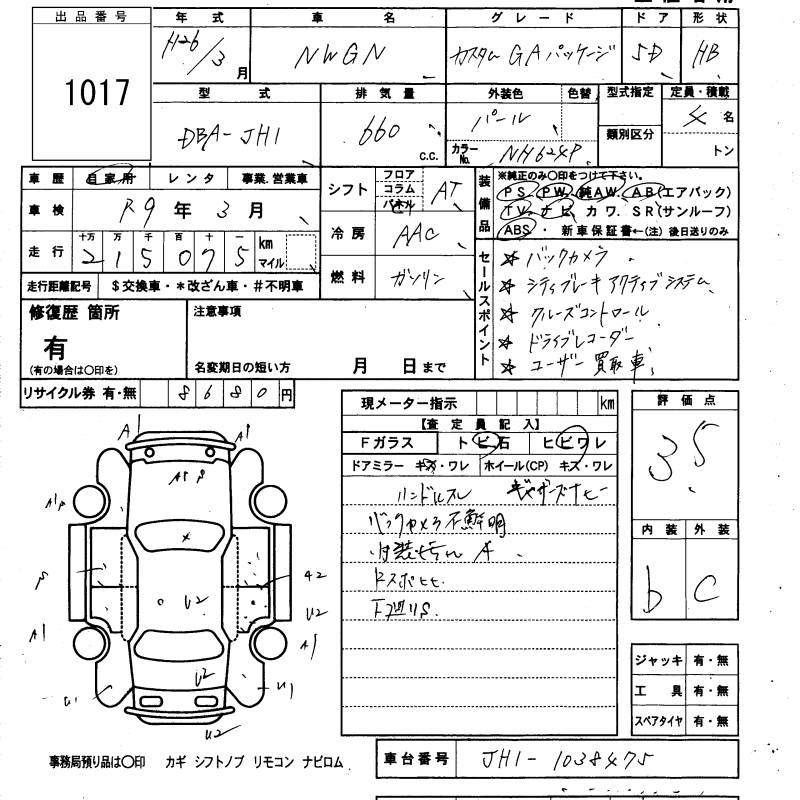 出品番号 年式 車名 グレード ドア 形状
1017 H26/3月 NWGN カスタム GAパッケージ 5D HB
型式 排気量 外装色 色替 型式指定 定員・積載
DBA-JH1 660 c.c. パール 類別区分 4名
カラーNo. NH624P トン
車歴 自家用 レンタ 事業.営業車 シフト フロア コラム パネル AT 装備品 ※純正のみ〇印をつけて下さい。
PS. PW. 純AW. AB(エアバック)
車検 R9年 3月 TV. ナビ. カワ. SR(サンルーフ)
冷房 AAC ABS ・ 新車保証書←(注)後日送りのみ
走行 十万 万 千 百 十 一 km マイル
215075
燃料 ガソリン
走行距離記号 $交換車・*改ざん車・#不明車
セールスポイント
☆ バックカメラ
☆ シティブレーキ アクティブシステム
☆ クルーズコントロール
☆ ドライブレコーダー
☆ ユーザー買取車
修復歴 箇所 注意事項
有
(有の場合は〇印を) 名変期日の短い方 月 日まで
リサイクル券 有・無 8680円
現メーター指示 km
【査定員記入】
Fガラス トビ石 ヒビワレ
ドアミラー キズ・ワレ ホイール(CP) キズ・ワレ
ハンドルスレ
バックカメラ不鮮明
下廻りS.
評価点
35
内装 外装
b C
ジャッキ 有・無
工具 有・無
スペアタイヤ 有・無
A1 A1
A1
U2
A2
U2
A1 A1
U2
U1 U1
U2
事務局預り品は〇印 カギ シフトノブ リモコン ナビロム
車台番号 JH1-1038475